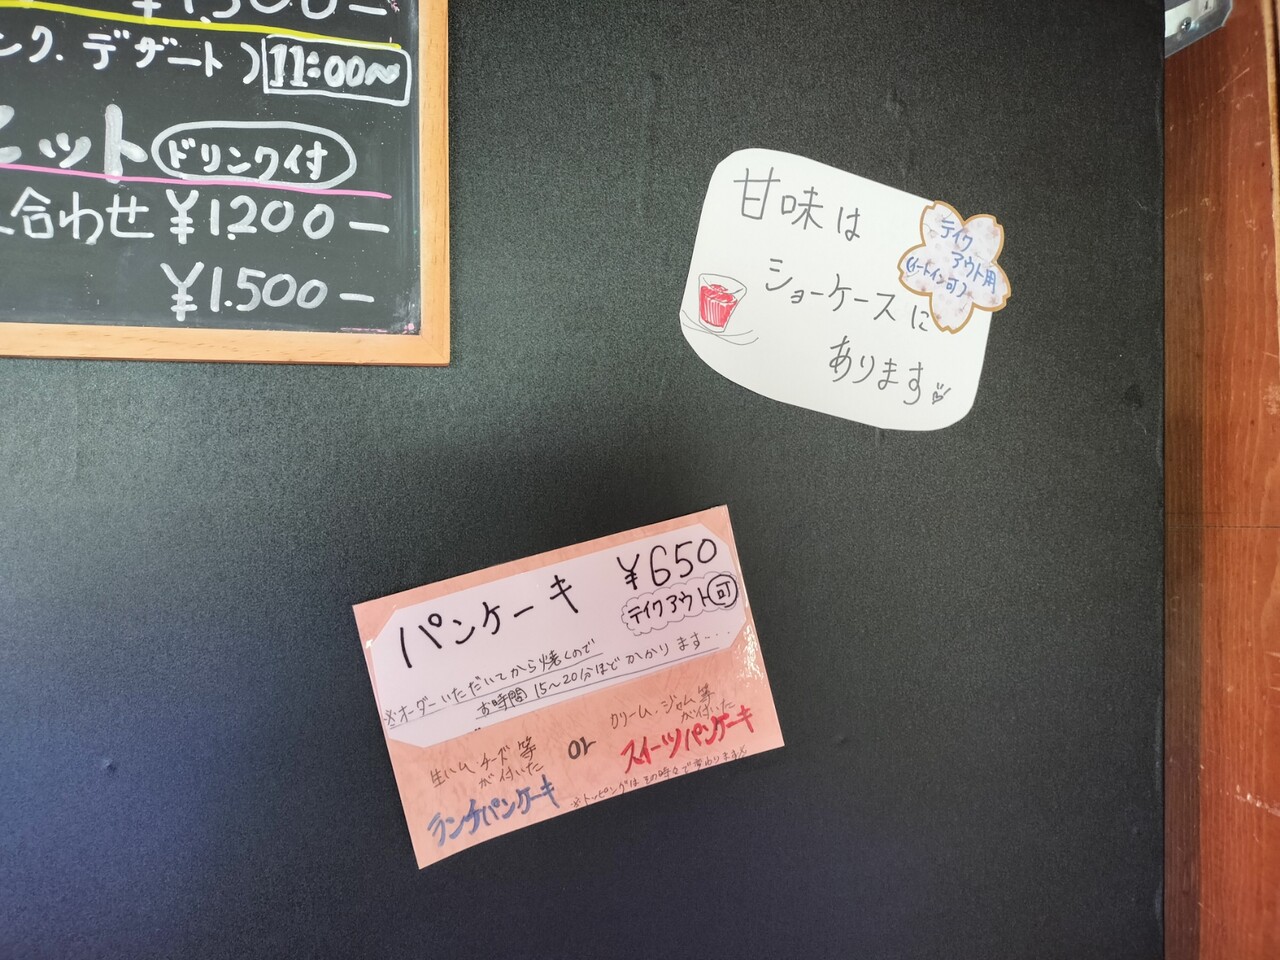 ¥1,500ー
ンク、デザート)11:00〜
セット ドリンク付
合わせ ¥1,200ー
¥1,500ー
甘味は
ショーケースに
あります
テイク
アウト用
(イートイン可)
パンケーキ ¥650
テイクアウト可
※オーダーいただいてから焼くので
お時間15〜20分ほどかかります....
生ハム、チーズ等
が付いた
ランチパンケーキ
or
クリーム、ジャム等
が付いた
スイーツパンケーキ
※トッピングはその時々で変わります※